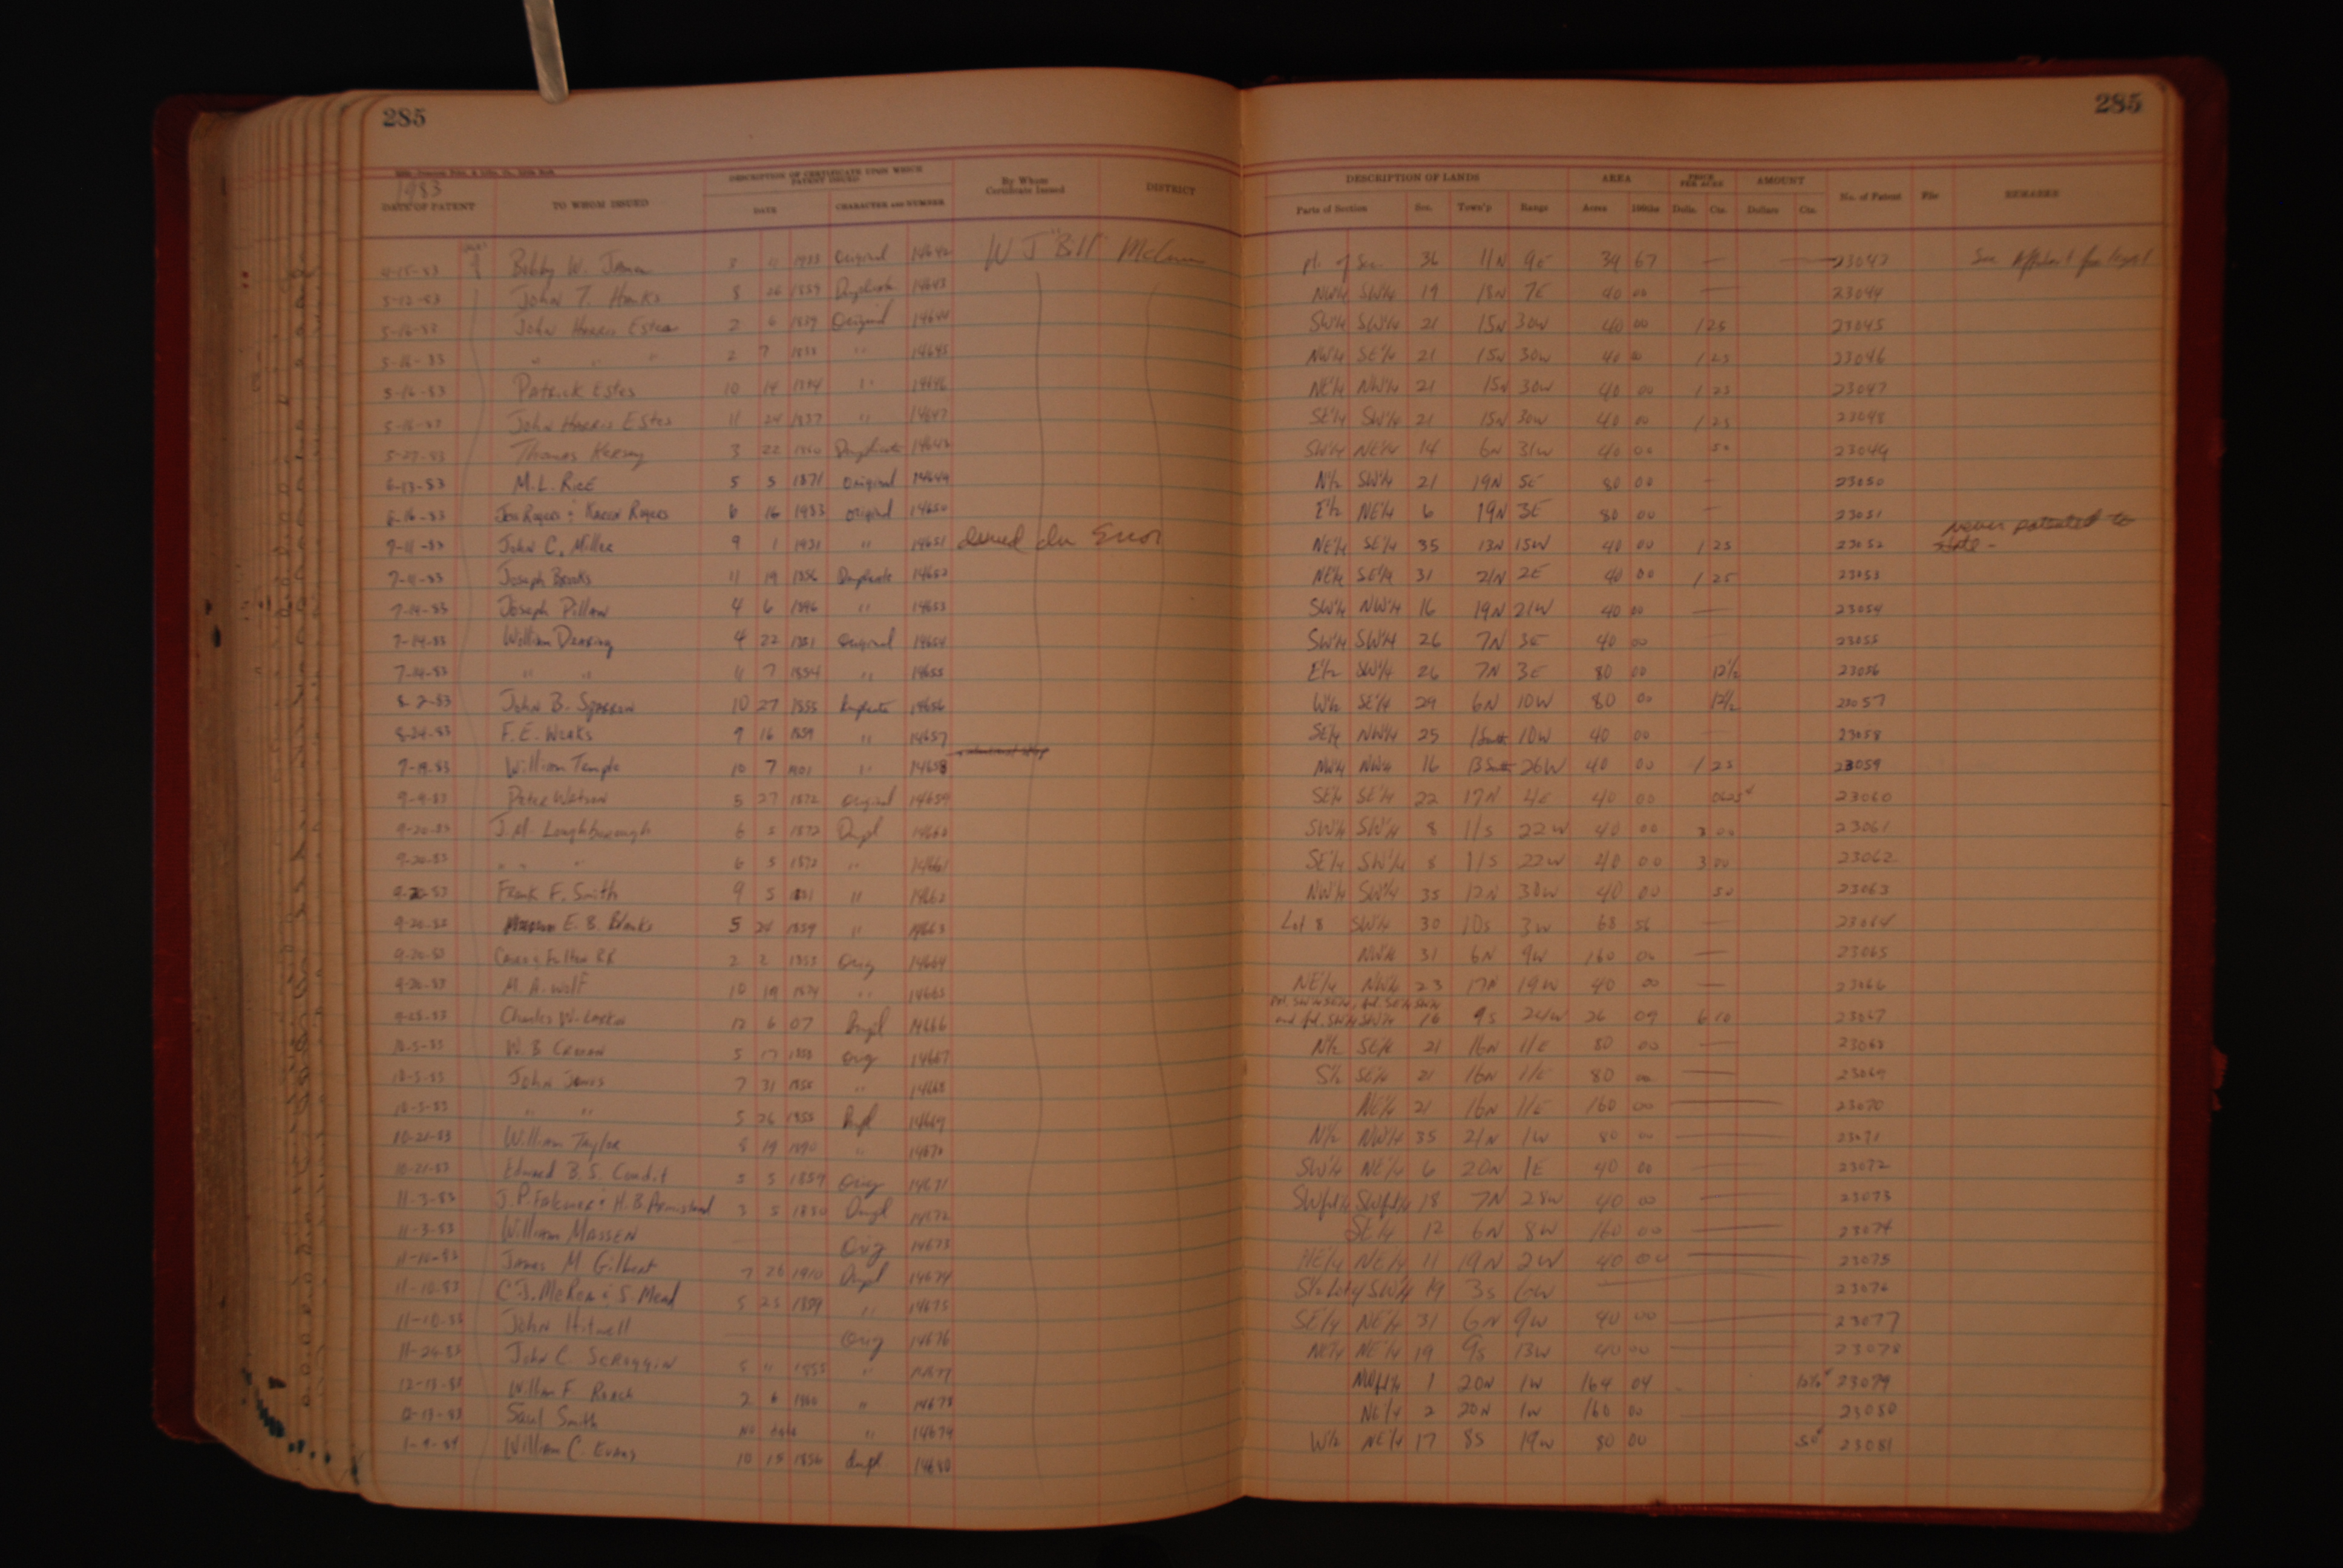 285
285
1983
DATE OF PATENT TO WHOM ISSUED DESCRIPTION OF CERTIFICATE UPON WHICH PATENT ISSUED DATE CHARACTER AND NUMBER By Whom Certificate Issued DISTRICT
DESCRIPTION OF LANDS Parts of Section Sec. Town'p Range AREA Acres 100ths PRICE PER ACRE Dolls. Cts. AMOUNT Dollars Cts. No. of Patent REMARKS
4-15-83 Bobby W. 3 11 1983 Original 14642 W J "Bill" pt. of Sec. 36 11N 9E 39 67 — — 23043 See Affidavit for legal
5-12-83 John T. Hanks 8 26 1859 Duplicate 14643 NW¼ SW¼ 19 18N 7E 40 00 — 23044
5-16-83 John Harris Estes 2 6 1859 Original 14644 SW¼ SW¼ 21 15N 30W 40 00 1 25 23045
5-16-83 " " " 2 7 " 14645 NW¼ SE¼ 21 15N 30W 40 00 1 25 23046
5-16-83 Patrick Estes 10 14 " 14646 NE¼ NW¼ 21 15N 30W 40 00 1 25 23047
5-16-83 John Harris Estes 11 24 1857 " 14647 SE¼ SW¼ 21 15N 30W 40 00 1 25 23048
5-27-83 Thomas Kersey 3 22 1860 Duplicate 14648 SW¼ NE¼ 14 6N 31W 40 00 50 23049
6-13-83 M.L. Rice 5 5 1871 Original 14649 N½ SW¼ 21 19N 5E 80 00 — 23050
6-16-83 Joe Rogers & Karen Rogers 6 16 1983 original 14650 E½ NE¼ 6 19N 3E 80 00 — 23051
7-11-83 John C. Miller 9 1 1931 " 14651 Error NE¼ SE¼ 35 13N 15W 40 00 1 25 23052 never patented to state -
7-11-83 Joseph Brooks 11 19 1856 Duplicate 14652 NE¼ SE¼ 31 21N 2E 40 00 1 25 23053
7-14-83 Joseph Pillow 4 6 1896 " 14653 SW¼ NW¼ 16 19N 21W 40 00 — 23054
7-14-83 William 4 22 Original 14654 SW¼ SW¼ 26 7N 3E 40 00 23055
7-14-83 " " 11 7 1854 " 14655 E½ SW¼ 26 7N 3E 80 00 12½ 23056
8-2-83 John B. Sparrow 10 27 1855 Duplicate 14656 W½ SE¼ 29 6N 10W 80 00 12½ 23057
8-24-83 F.E. Weeks 9 16 1859 " 14657 SE¼ NW¼ 25 1 South 10W 40 00 — 23058
7-19-83 William Temple 10 7 1901 " 14658 NW¼ NW¼ 16 13 South 26W 40 00 1 25 23059
9-9-83 Peter Watson 5 27 1872 Original 14659 SE¼ SE¼ 22 17N 4E 40 00 23060
9-20-83 J.M. Loughborough 6 5 1872 Dupl 14660 SW¼ SW¼ 8 11S 22W 40 00 3 00 23061
9-20-83 " " " 6 5 1872 " 14661 SE¼ SW¼ 8 11S 22W 40 00 3 00 23062
9-20-83 Frank F. Smith 9 5 " 14662 NW¼ SW¼ 35 12N 30W 40 00 50 23063
9-20-83 E. B. Blanks 5 24 1859 " 14663 Lot 8 SW¼ 30 10S 3W 68 56 — 23064
9-20-83 Cairo & Fulton RR 2 2 1855 Orig 14664 NW¼ 31 6N 9W 160 00 — 23065
9-20-83 M. A. Wolf 10 19 1874 " 14665 NE¼ NW¼ 23 17N 19W 40 00 — 23066
9-28-83 Charles W. Larkin 12 6 07 Dupl 14666 Frl. SW¼ SE¼, frl. SE¼ SW¼ and frl. SW¼ SW¼ 16 9S 24W 26 09 6 10 23067
10-5-83 W. B. 5 17 1855 Orig 14667 N½ SE¼ 21 16N 11E 80 00 — 23068
10-5-83 John Jones 7 31 " 14668 S½ SE¼ 21 16N 11E 80 00 — 23069
10-5-83 " " 5 26 1855 Dupl 14669 NE¼ 21 16N 11E 160 00 — 23070
10-21-83 William Taylor 8 19 1890 " 14670 N½ NW¼ 35 21N 1W 80 00 — 23071
10-21-83 Edward B. S. Condit 5 5 1859 Orig 14671 SW¼ NE¼ 6 20N 1E 40 00 — 23072
11-3-83 J. P. & H. B. Armistead 3 5 1850 Dupl 14672 SWfrl¼ SWfrl¼ 18 7N 28W 40 00 — 23073
11-3-83 William Massen — Orig 14673 SE¼ 12 6N 8W 160 00 — 23074
11-10-83 James M Gilbert 7 26 1910 Dupl 14674 NE¼ NE¼ 11 19N 2W 40 00 — 23075
11-10-83 C. J. & S. Mead 5 25 1859 " 14675 S½ SW¼ 19 3S 6W — 23076
11-10-83 John Hitwell — Orig 14676 SE¼ NE¼ 31 6N 9W 40 00 — 23077
11-24-83 John C Scroggin 5 11 1855 " 14677 NE¼ NE¼ 19 9S 13W 40 00 — 23078
12-13-83 William F. Roach 2 6 1860 " 14678 1 20N 1W 164 04 23079
12-13-83 Saul Smith No date " 14679 NE¼ 2 20N 1W 160 00 — 23080
1-9-84 William C. Evans 10 15 1856 Dupl 14680 W½ NE¼ 17 8S 19W 80 00 50¢ 23081